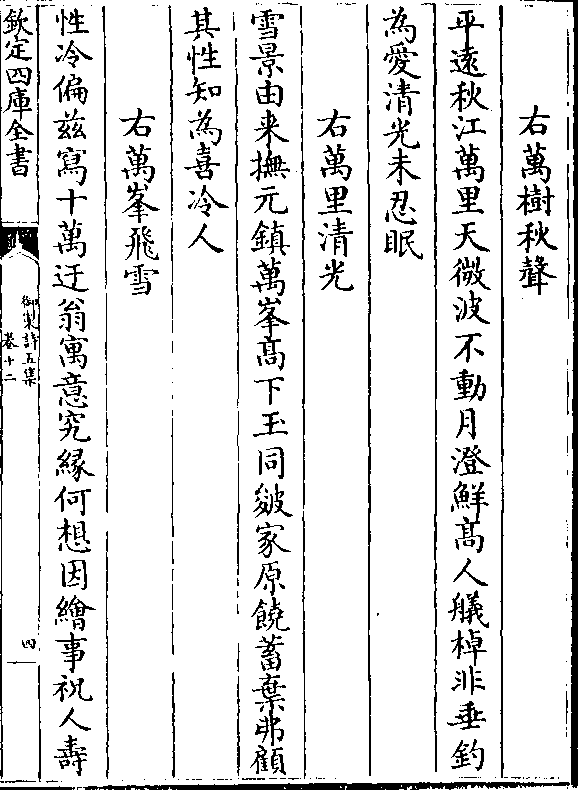 右萬樹秋聲
平遠秋江萬里天微波不動月澄鮮髙人艤棹非垂釣
為愛清光未忍眠
右萬里清光
雪景由来撫元鎮萬峯髙下玉同皴家原饒蓄棄弗顧
其性知為喜冷人
右萬峯飛雪
性冷偏兹寫十萬迂翁寓意究緣何想因繪事祝人壽
欽定四庫全書
御製詩五集
卷十二
四